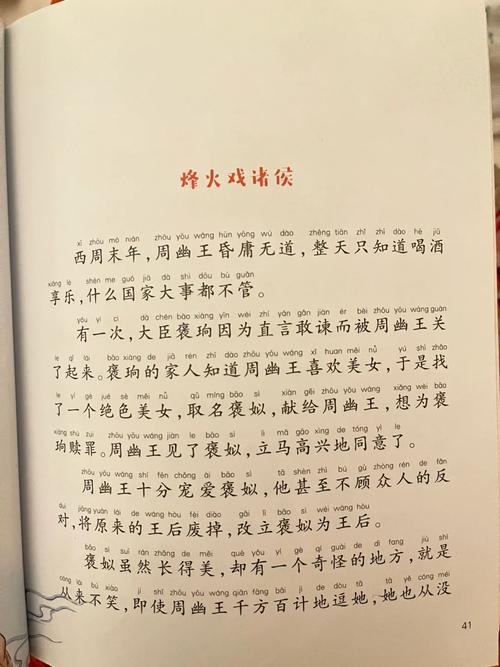 烽火戏诸侯
xī zhōu mò nián zhōu yōu wáng hūn yōng wú dào zhěng tiān zhǐ zhī dào hē jiǔ
西周末年，周幽王昏庸无道，整天只知道喝酒
xiǎng lè shén me guó jiā dà shì dōu bù guǎn
享乐，什么国家大事都不管。
yǒu yí cì dà chén bāo xiǎng yīn wèi zhí yán gǎn jiàn ér bèi zhōu yōu wáng guān
有一次，大臣褒珦因为直言敢谏而被周幽王关
le qǐ lái bāo xiǎng de jiā rén zhī dào zhōu yōu wáng xǐ huan měi nǚ yú shì zhǎo
了起来。褒珦的家人知道周幽王喜欢美女，于是找
le yí gè jué sè měi nǚ qǔ míng bāo sì xiàn gěi zhōu yōu wáng xiǎng wèi bāo
了一个绝色美女，取名褒姒，献给周幽王，想为褒
xiǎng shú zuì zhōu yōu wáng jiàn le bāo sì lì mǎ gāo xìng de tóng yì le
珦赎罪。周幽王见了褒姒，立马高兴地同意了。
zhōu yōu wáng shí fēn chǒng ài bāo sì tā shèn zhì bú gù zhòng rén de fǎn
周幽王十分宠爱褒姒，他甚至不顾众人的反
duì jiāng yuán lái de wáng hòu fèi diào gǎi lì bāo sì wéi wáng hòu
对，将原来的王后废掉，改立褒姒为王后。
bāo sì suī rán zhǎng de měi què yǒu yí gè qí guài de dì fang jiù shì
褒姒虽然长得美，却有一个奇怪的地方，就是
cóng lái bú xiào jí shǐ zhōu yōu wáng qiān fāng bǎi jì de dòu tā tā yě cóng méi
从来不笑，即使周幽王千方百计地逗她，她也从没
41